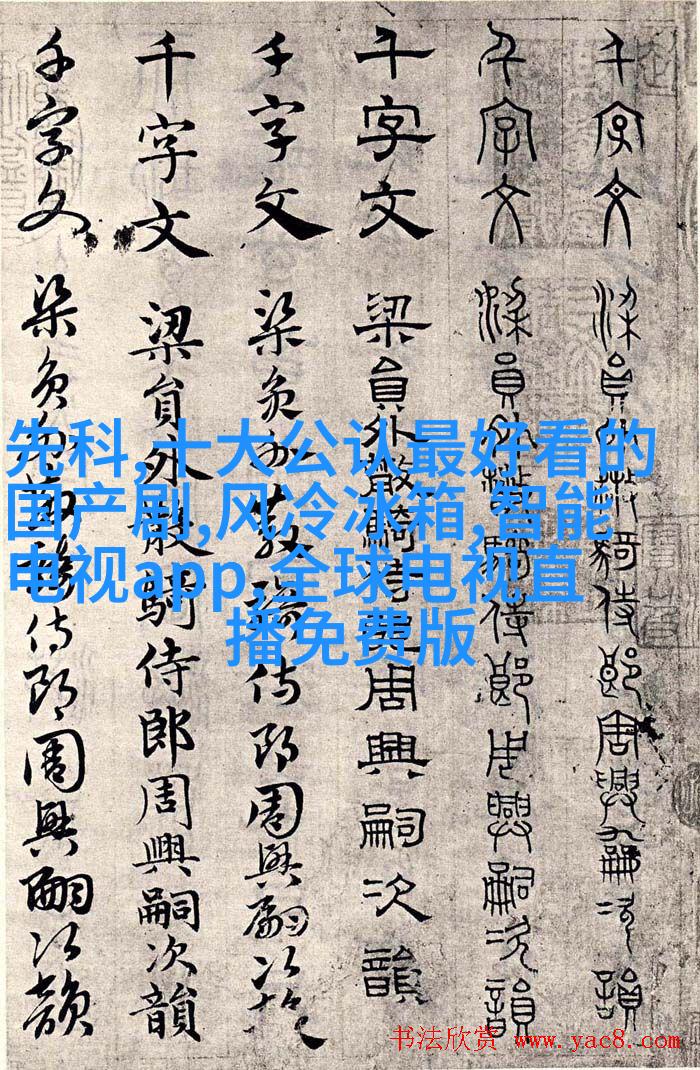 千字文 梁員外散騎侍郎周興嗣次韻
千字文 梁員外散騎侍郎周興嗣次韻
千字文 梁員外散騎侍郎周興嗣次韻
千字文 梁員外散騎侍郎周興嗣次韻
千字文 梁員外散騎侍郎周興嗣次韻
千字文 梁員外散騎侍郎周興嗣次韻
先科,十大公认最好看的
国产剧,风冷冰箱,智能
电视app,全球电视直
播免费版
书法欣赏 www.yac8.com